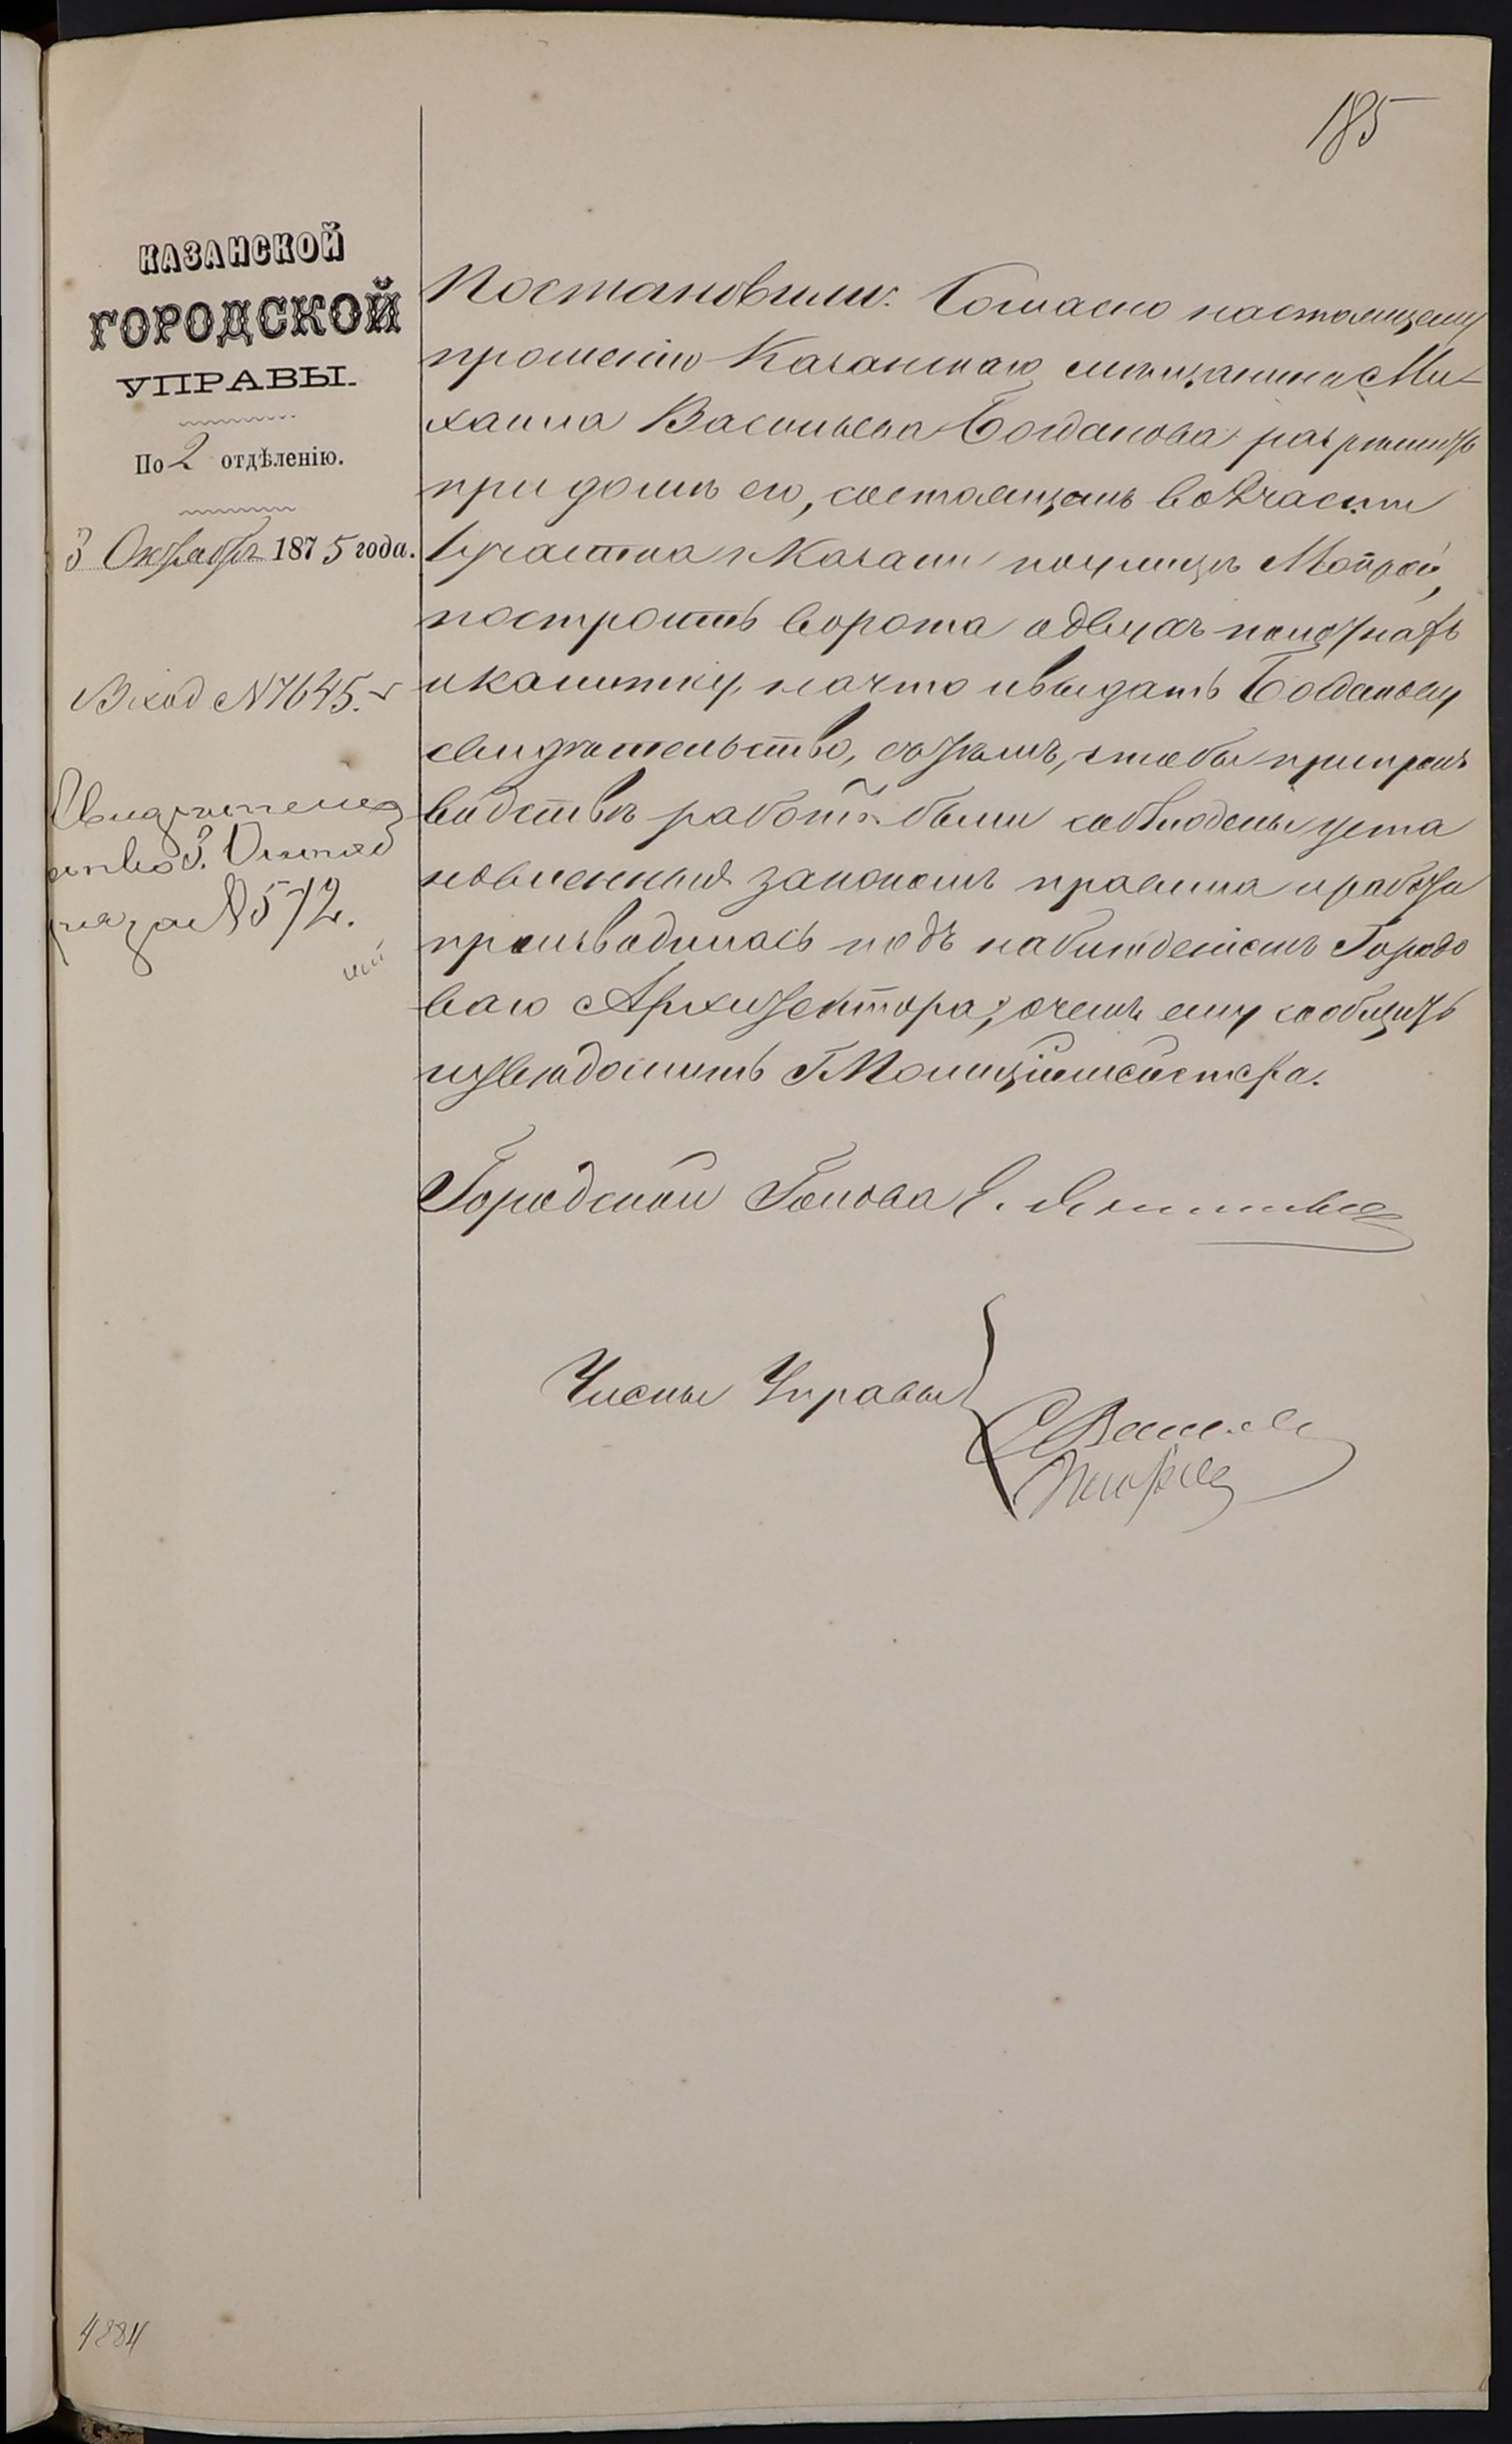 185
КАЗАНСКОЙ
ГОРОДСКОЙ
УПРАВЫ.
По 2 отдѣленію.
3 Октября 1875 года.
Вход №7645.
Свидѣтель
ство 3. Октяб
ря за №572.
Постановили: Согласно настоящему
прошенію Казанскаго мѣщанина Ми-
хаила Васильева Богданова разрѣшить
при домѣ его, состоящемъ во 2 части
1 участка г Казани по улицѣ Мокрой,
построить ворота о двухъ полотнахъ
и калитку, на что и выдать Богданову
свидѣтельство, съ тѣмъ, чтобы при произ
водствѣ работъ были соблюдены уста
новленныя закономъ правила и работа
производилась подъ наблюденіемъ Городо
ваго Архитектора, о чемъ ему сообщить
и увѣдомить Г Полиціймейстера.
Городской Голова Е.
Члены Управы
4884